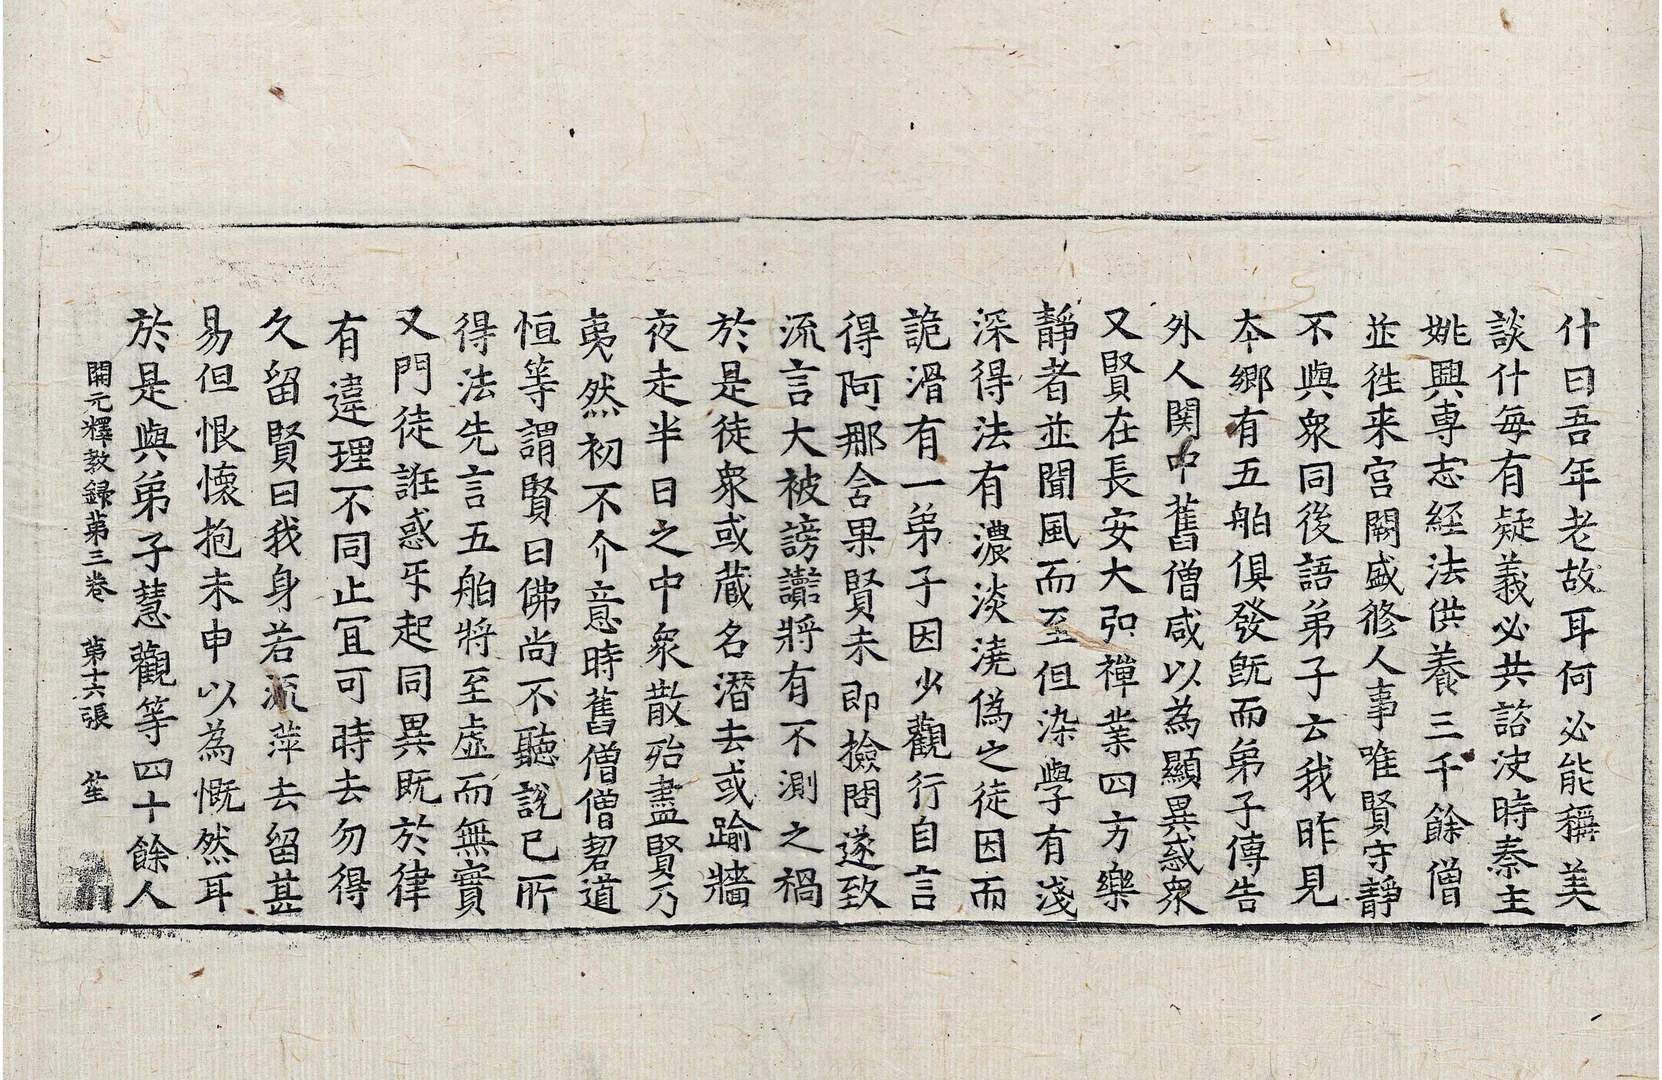 什曰吾年老故耳何必能稱美
談什每有疑義必共諮決時秦主
姚興專志經法供養三千餘僧
並往来宮闕盛修人事唯賢守靜
不與衆同後語弟子云我昨見
本鄉有五舶俱發旣而弟子傳告
外人関中舊僧咸以為顯異惑衆
又賢在長安大弘禪業四方樂
靜者並聞風而至但染學有淺
深得法有濃淡澆僞之徒因而
詭滑有一弟子因少觀行自言
得阿那含果賢未即撿問遂致
流言大被謗讟將有不測之禍
於是徒衆或藏名潛去或踰牆
夜走半日之中衆散殆盡賢乃
夷然初不介意時舊僧僧䂮道
恒等謂賢曰佛尚不聽說已所
得法先言五舶將至虛而無實
又門徒誑惑㸦起同異既於律
有違理不同止冝可時去勿得
久留賢曰我身若流萍去留甚
易但恨懷抱未申以為慨然耳
於是與弟子慧觀等四十餘人
開元釋教録第三卷 第十六張 笙